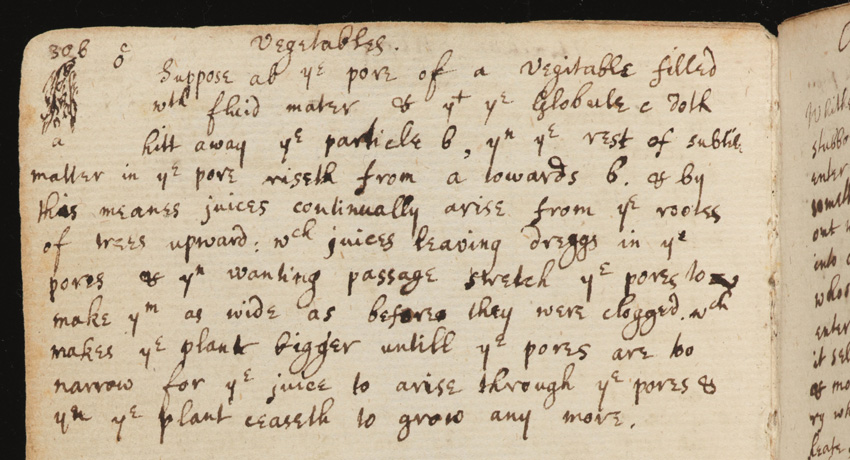 306 c Vegetables.
b Suppose ab yᵉ pore of a vegitable filled
wᵗʰ fluid mater & yᵗ yᵉ Globule c doth
a hitt away yᵉ particle b, yⁿ yᵉ rest of subtile
matter in yᵉ pore riseth from a towards b. & by
this meanes juices continually arise from yᵉ rootes
of trees upward: wᶜʰ juices leaving dreggs in yᵉ
pores & yⁿ wanting passage stretch yᵉ pores to
make yᵐ as wide as before they were clogged. wᶜʰ
makes yᵉ plant bigger untill yᵉ pores are too
narrow for yᵉ juice to arise through yᵉ pores &
yⁿ yᵉ plant ceaseth to grow any more.
enter
out
into
enter
it sel
& mo